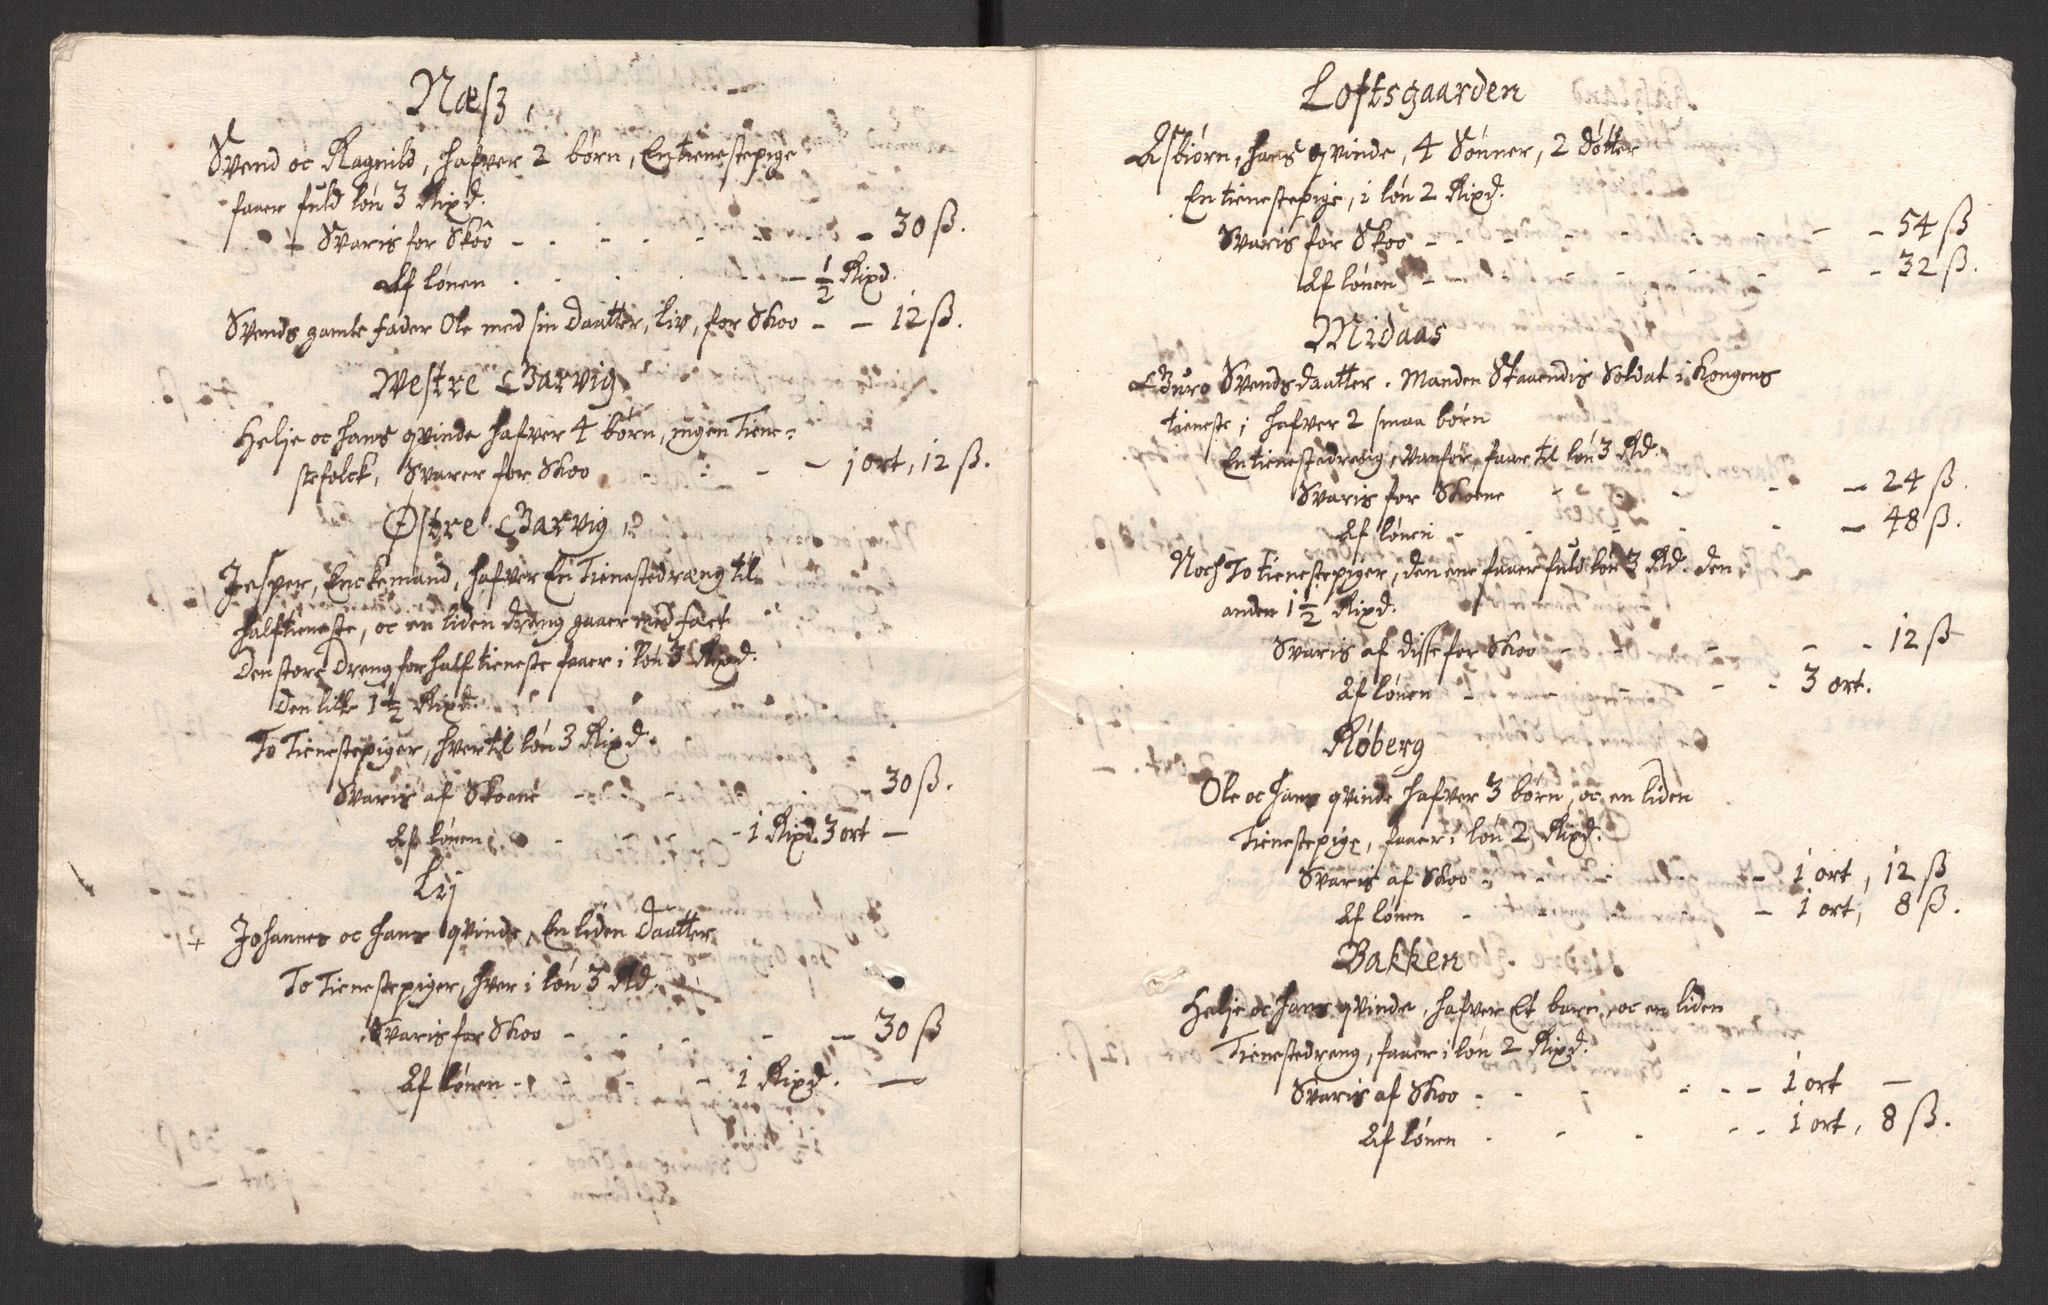 Næss,
Svend oc Ragnild, hafver 2 börn, En tienestepige
faaer fuld lön 3 Rixd.
Svaris for Skoo - - - - - - - 30 ß.
Af lönen . . . . - - ½ Rixd.
Svends gamle fader Ole med sin daatter, liv, for Skoo - - 12 ß.
Westre Barvig
Helje oc hans qvinde hafver 4 börn, ingen Tiene-
stefolck, Svarer for Skoo - - - - 1 ort, 12 ß.
Østre Barvig
Jesper, Enckemand, hafver En Tienestedræng til
halftieneste, oc en liden dräng gaaer med fæet
Den store Dreng for half tieneste faaer i lön 3 Rixd.
Den lille 1½ Rixd.
To Tienestepiger, hver til lön 3 Rixd.
Svaris af Skoene - - - - - 30 ß.
Af lönen - - - 1 Rixd. 3 ort -
Lij
+ Johannes oc hans qvinde, En liden Daatter
To Tienestepiger, hver i lön 3 Rd.
Svaris for Skoo - - - - - 30 ß
Af lönen - - - - 1 Rixd. -
Loftsgaarden
Asbiörn, hans qvinde, 4 Sönner, 2 dötter
En tienestepige, i lön 2 Rixd.
Svaris for Skoo - - - - - - - 54 ß
Af lönen - - - - - - - 32 ß.
Midaas
Buro Svendsdaatter. Manden Staaendis Soldat i Kongens
tieneste, hafver 2 smaa börn
En tienestedreng, vanför, faar til lön 3 Rd.
Svaris for Skoene - - - - - 24 ß.
Af lönen - - - - - 48 ß.
Noch To tienestepiger, den ene faaer fuld lön 3 Rd. den
anden 1½ Rixd.
Svaris af disse for Skoo - - - - - 12 ß
Af lönen - - - - - 3 ort.
Röberg
Ole oc hans qvinde hafver 3 börn, oc en liden
Tienestepige, faaer i lön 2 Rixd.
Svaris af Skoo - - - - - 1 ort, 12 ß
Af lönen - - - - - 1 ort, 8 ß.
Bakken
Helje oc hans qvinde, hafver Et barn, oc en liden
Tienestedreng, faaer i lön 2 Rixd.
Svaris af Skoo - - - - - 1 ort -
Af lönen - - - - - 1 ort, 8 ß.